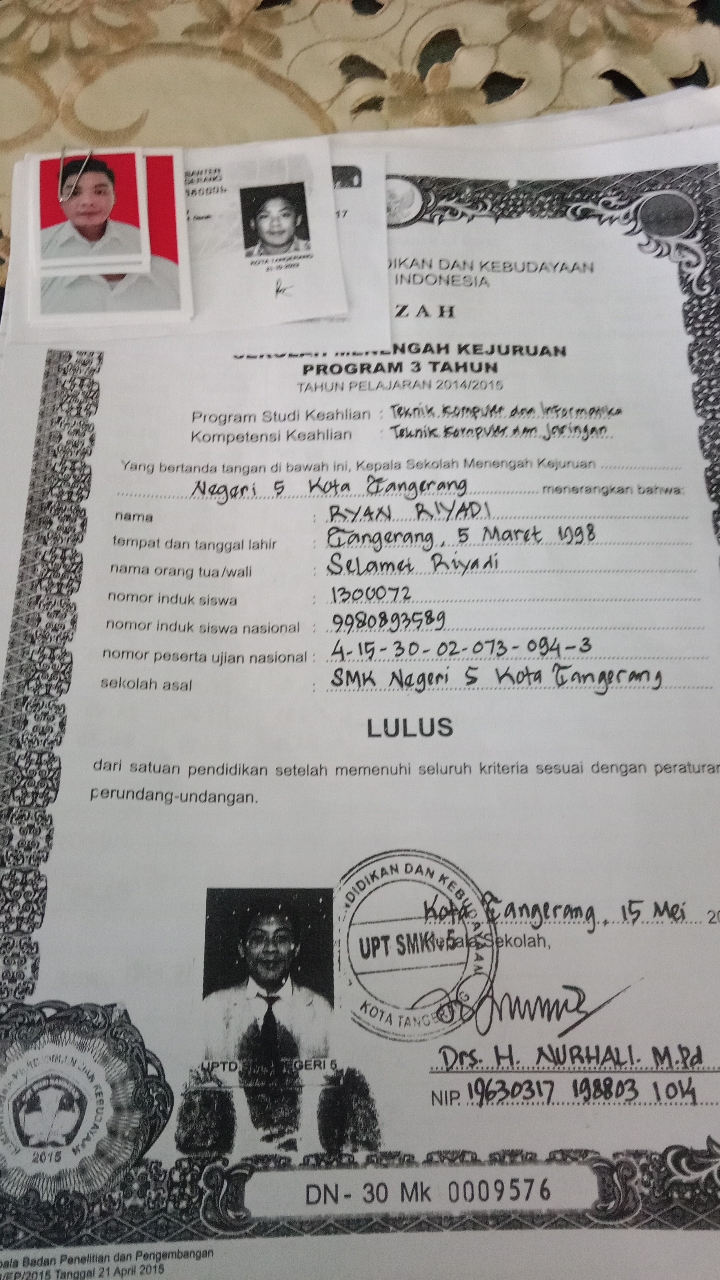 BANTEN
KOTA TANGERANG
31-10-2022
17
DIKAN DAN KEBUDAYAAN
INDONESIA
ZAH
SEKOLAH MENENGAH KEJURUAN
PROGRAM 3 TAHUN
TAHUN PELAJARAN 2014/2015
Program Studi Keahlian : Teknik Komputer dan Informatika
Kompetensi Keahlian : Teknik Komputer dan Jaringan
Yang bertanda tangan di bawah ini, Kepala Sekolah Menengah Kejuruan
Negeri 5 Kota Tangerang menerangkan bahwa:
nama : RYAN RIYADI
tempat dan tanggal lahir : Tangerang, 5 Maret 1998
nama orang tua/wali : Selamet Riyadi
nomor induk siswa : 1300072
nomor induk siswa nasional : 9980893589
nomor peserta ujian nasional : 4-15-30-02-073-094-3
sekolah asal : SMK Negeri 5 Kota Tangerang
LULUS
dari satuan pendidikan setelah memenuhi seluruh kriteria sesuai dengan peraturan
perundang-undangan.
Kota Tangerang, 15 Mei 20
Kepala Sekolah,
DIDIKAN DAN KEBUDAYAAN
UPT SMKN 5
KOTA TANGERANG
UPTD SMK NEGERI 5
Drs. H. NURHALI. M.Pd
NIP. 19630317 198803 1 014
2015
DN - 30 Mk 0009576
pala Badan Penelitian dan Pengembangan
/EP/2015 Tanggal 21 April 2015